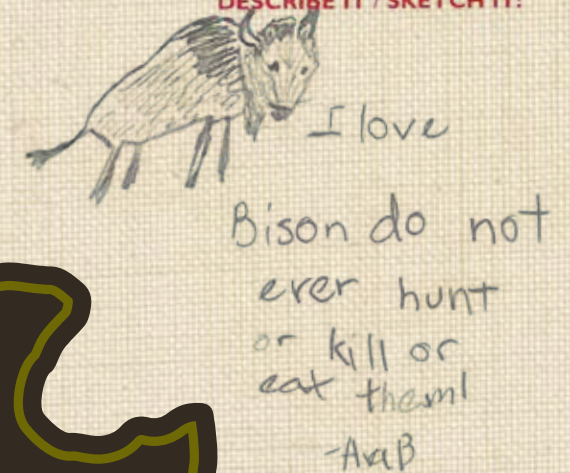 DESCRIBE IT / SKETCH IT!
I love
Bison do not
ever hunt
or kill or
eat them!
-Ava B